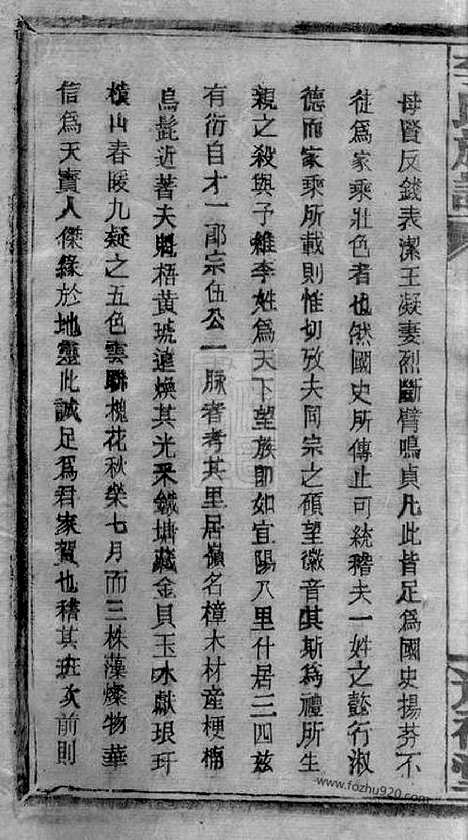 母賢反錢表潔王凝妻烈斷臂鳴貞凡此皆足為國史揚芬不
徒為家乘壯色者也然國史所傳止可統稽夫一姓之懿行淑
德而家乘所載則惟切攷夫同宗之碩望徽音琪斯為禮所生
親之殺與予維李姓為天下望族即如宜陽八里什居三四兹
有衍自才一郎宗伍公一脉者考其里居嶺名樟木材産梗楠
烏髭近著夫魁梧黃琥遠煥其光采鐵塘藏金貝玉水獻琅玕
橫山春暖九疑之五色雲聯槐花秋榮七月而三株藻燦物華
信為天寶人傑緣於地靈此誠足為君家賀也稽其班次前則
李氏族譜
www.fozhu920.com